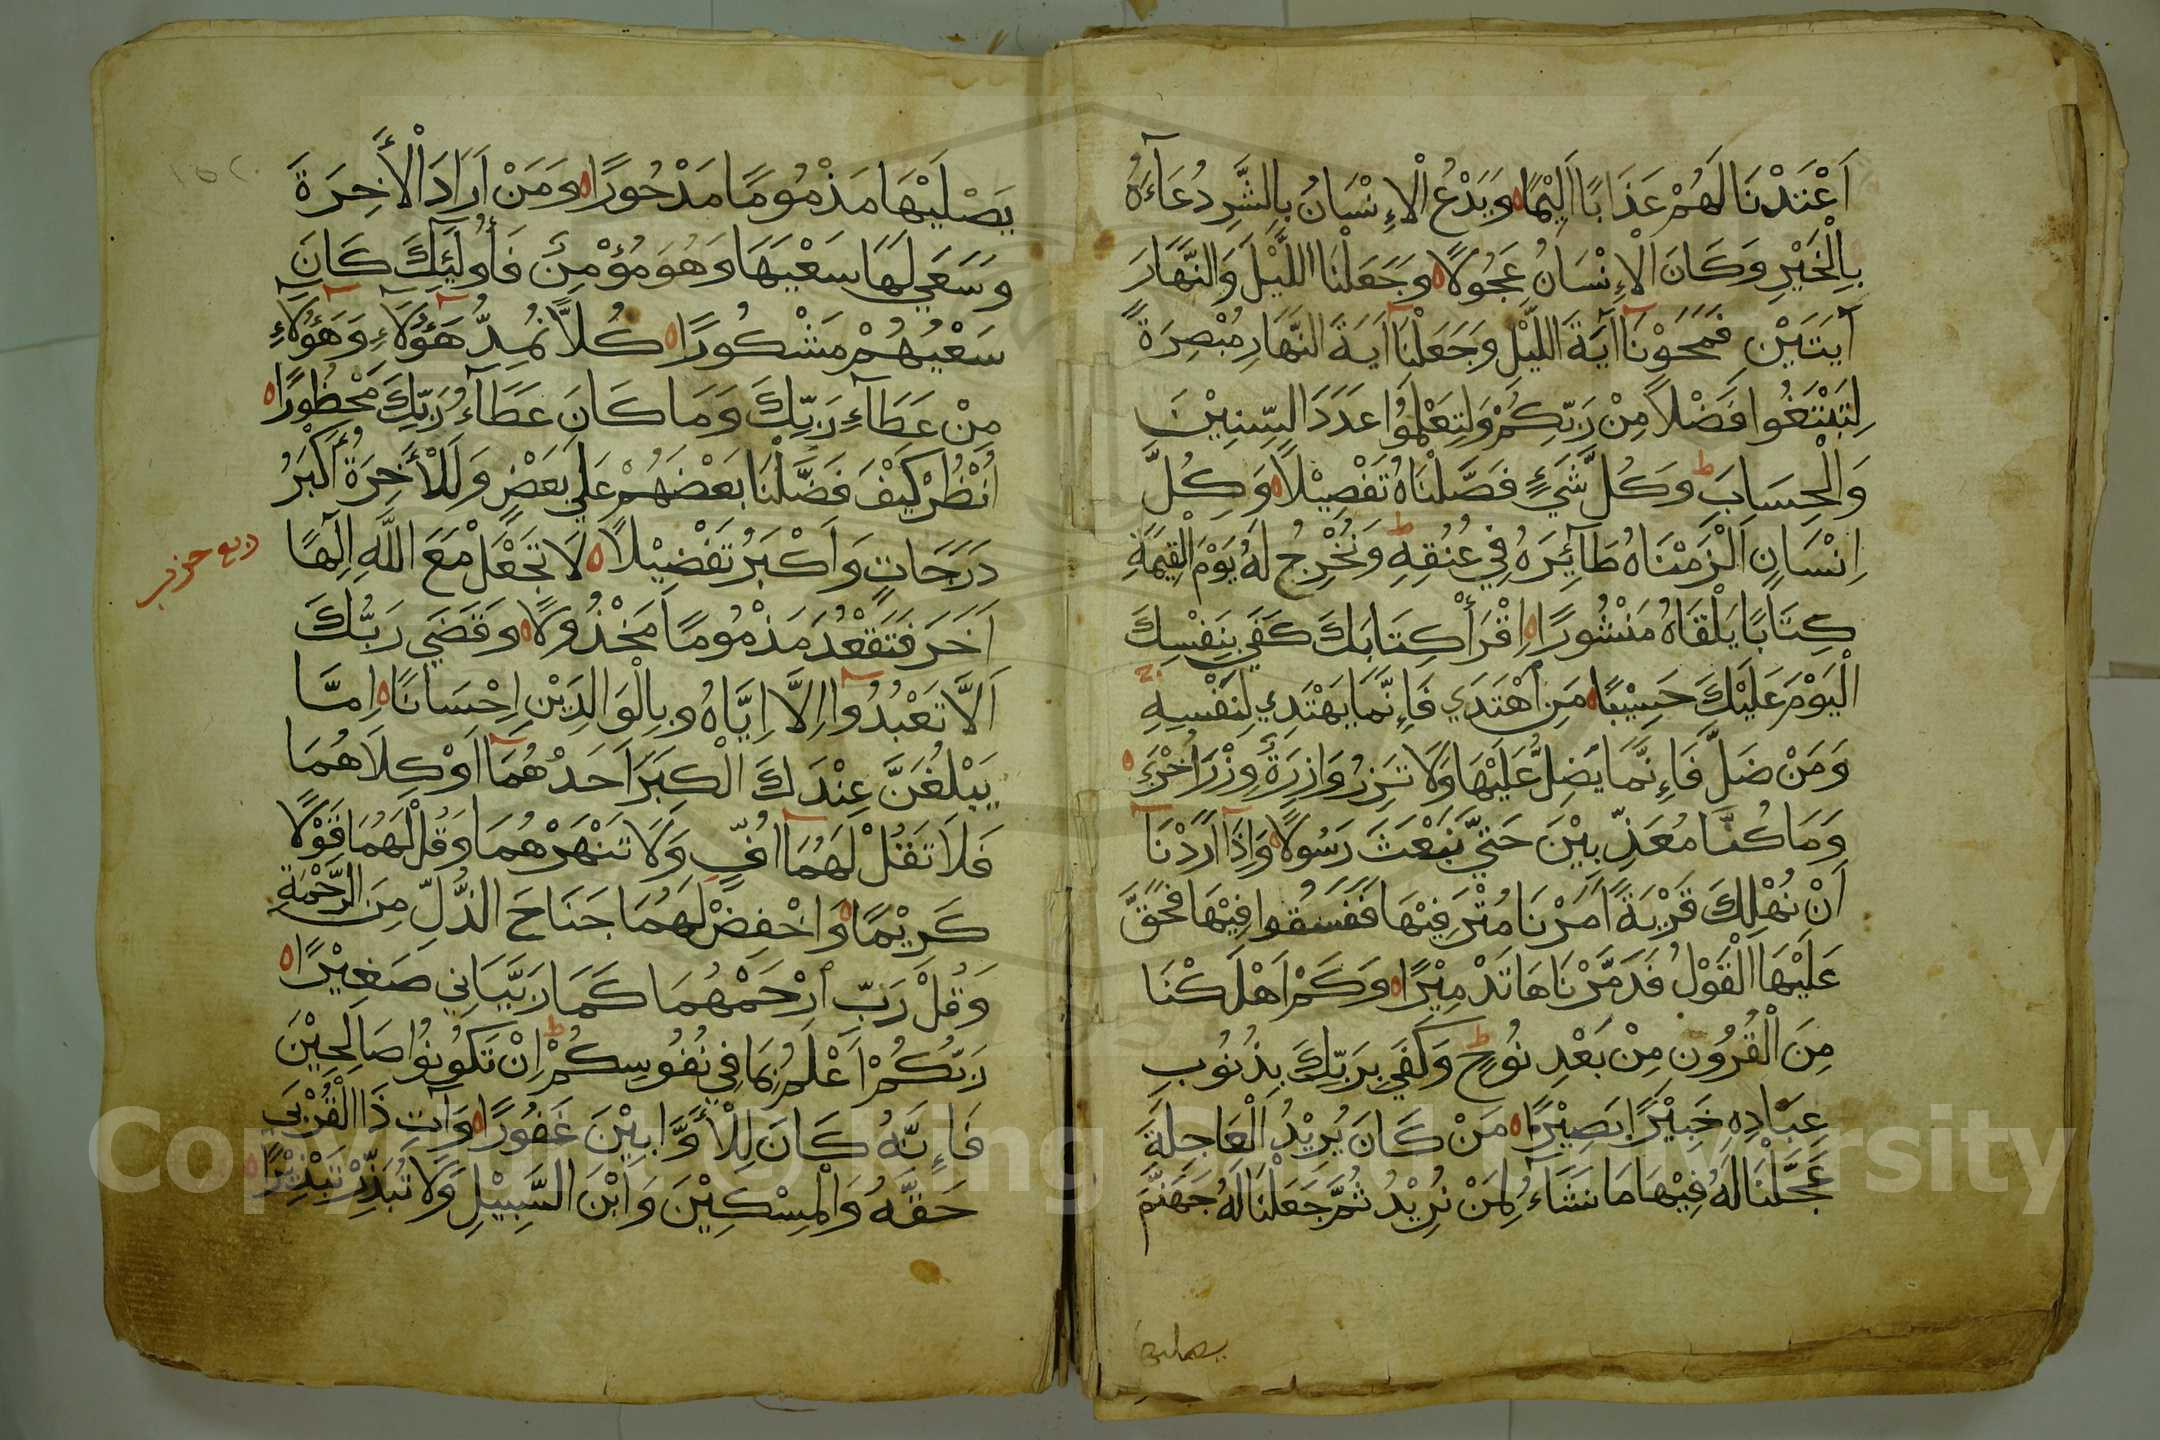 اَعْتَدْنَا لَهُمْ عَذَابًا اَلِيْمًا ۝ وَيَدْعُ الْاِنْسَانُ بِالشَّرِّ دُعَآءَهُ
بِالْخَيْرِ وَكَانَ الْاِنْسَانُ عَجُولًا ۝ وَجَعَلْنَا اللَّيْلَ وَالنَّهَارَ
آيَتَيْنِ فَمَحَوْنَآ اٰيَةَ اللَّيْلِ وَجَعَلْنَآ اٰيَةَ النَّهَارِ مُبْصِرَةً
لِتَبْتَغُوا فَضْلًا مِنْ رَبِّكُمْ وَلِتَعْلَمُوا عَدَدَ السِّنِيْنَ
وَالْحِسَابَ ط وَكُلَّ شَيْءٍ فَصَّلْنَاهُ تَفْصِيْلًا ۝ وَكُلَّ
اِنْسَانٍ اَلْزَمْنَاهُ طَآئِرَهُ فِي عُنُقِهِ ط وَنُخْرِجُ لَهُ يَوْمَ الْقِيٰمَةِ
كِتَابًا يَلْقَاهُ مَنْشُورًا ۝ اِقْرَأْ كِتَابَكَ كَفَى بِنَفْسِكَ
الْيَوْمَ عَلَيْكَ حَسِيْبًا ۝ مَنِ اهْتَدَي فَاِنَّمَا يَهْتَدِي لِنَفْسِهِ ج
وَمَنْ ضَلَّ فَاِنَّمَا يَضِلُّ عَلَيْهَا وَلَا تَزِرُ وَازِرَةٌ وِزْرَ اُخْرٰي ۝
وَمَا كُنَّا مُعَذِّبِيْنَ حَتّٰي نَبْعَثَ رَسُولًا ۝ وَاِذَآ اَرَدْنَآ
اَنْ نُهْلِكَ قَرْيَةً اَمَرْنَا مُتْرَفِيْهَا فَفَسَقُوا فِيْهَا فَحَقَّ
عَلَيْهَا الْقَوْلُ فَدَمَّرْنَاهَا تَدْمِيْرًا ۝ وَكَمْ اَهْلَكْنَا
مِنَ الْقُرُونِ مِنْ بَعْدِ نُوحٍ ط وَكَفَي بِرَبِّكَ بِذُنُوبِ
عِبَادِهِ خَبِيْرًا بَصِيْرًا ۝ مَنْ كَانَ يُرِيْدُ الْعَاجِلَةَ
عَجَّلْنَا لَهُ فِيْهَا مَا نَشَآءُ لِمَنْ نُرِيْدُ ثُمَّ جَعَلْنَا لَهُ جَهَنَّمَ
يصليها
يَصْلَيٰهَا مَذْمُومًا مَدْحُورًا ۝ وَمَنْ اَرَادَ الْأٰخِرَةَ
وَسَعَي لَهَا سَعْيَهَا وَهُوَ مُؤْمِنٌ فَأُولٰئِكَ كَانَ
سَعْيُهُمْ مَشْكُورًا ۝ كُلًّا نُمِدُّ هٰٓؤُلَآءِ وَهٰٓؤُلَآءِ
مِنْ عَطَآءِ رَبِّكَ وَمَا كَانَ عَطَآءُ رَبِّكَ مَحْظُورًا ۝
اُنْظُرْ كَيْفَ فَضَّلْنَا بَعْضَهُمْ عَلَي بَعْضٍ وَلَلْأٰخِرَةُ أَكْبَرُ
دَرَجَاتٍ وَاَكْبَرُ تَفْضِيْلًا ۝ لَا تَجْعَلْ مَعَ اللَّهِ اِلٰهًا
ربع حزب
اٰخَرَ فَتَقْعُدَ مَذْمُومًا مَخْذُولًا ۝ وَقَضَي رَبُّكَ
اَلَّا تَعْبُدُوٓا اِلَّا اِيَّاهُ وَبِالْوَالِدَيْنِ اِحْسَانًا ۝ اِمَّا
يَبْلُغَنَّ عِنْدَكَ الْكِبَرَ اَحَدُهُمَآ اَوْ كِلَاهُمَا
فَلَا تَقُلْ لَهُمَآ اُفٍّ وَلَا تَنْهَرْهُمَا وَقُلْ لَهُمَا قَوْلًا
كَرِيْمًا ۝ وَاخْفِضْ لَهُمَا جَنَاحَ الذُّلِّ مِنَ الرَّحْمَةِ
وَقُلْ رَبِّ ارْحَمْهُمَا كَمَا رَبَّيَانِي صَغِيْرًا ۝
رَبُّكُمْ اَعْلَمُ بِمَا فِي نُفُوسِكُمْ ط اِنْ تَكُونُوا صَالِحِيْنَ
فَاِنَّهُ كَانَ لِلْأَوَّابِيْنَ غَفُورًا ۝ وَآتِ ذَا الْقُرْبٰي
حَقَّهُ وَالْمِسْكِيْنَ وَابْنَ السَّبِيْلِ وَلَا تُبَذِّرْ تَبْذِيْرًا ۝
Copyright © King Saud University